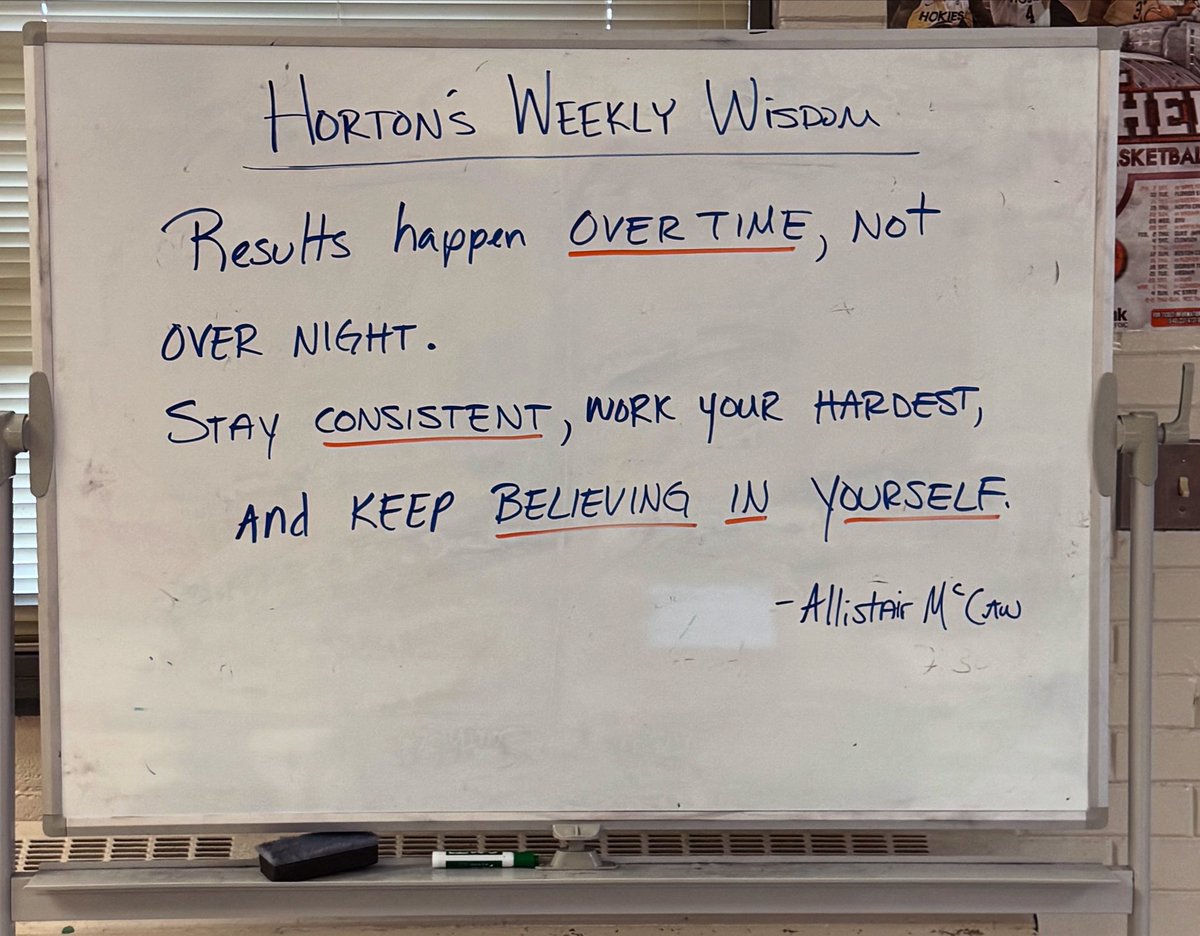 HORTON'S WEEKLY WISDOM
Results happen OVER TIME, NOt
OVER NIGHT.
STAY CONSISTENT, WORK YOUR HARDEST,
ANd KEEP BELIEVING IN YOURSELF.
- Allistair McCaw
HOKIES
4
HE
SKETBAL